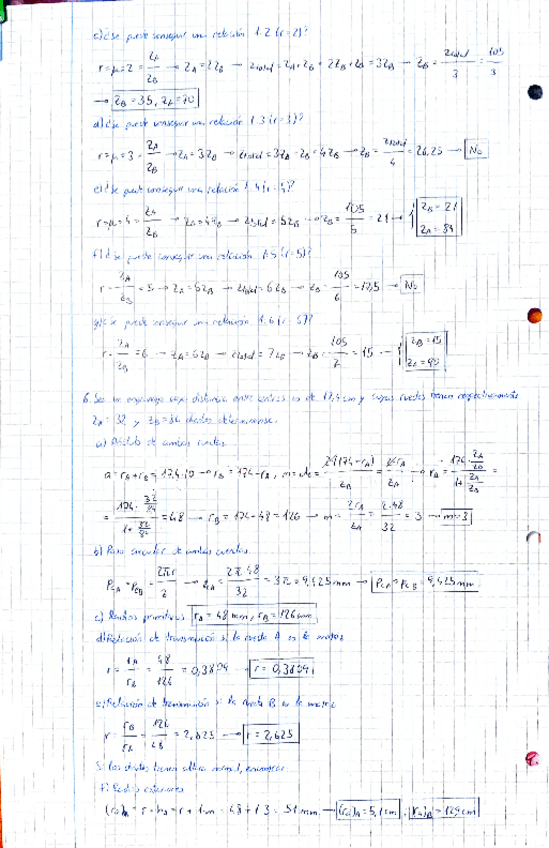 c) ¿Se puede conseguir una relación 1:2 (r=2)?
r = μ = 2 = zA/zB → zA = 2zB → ztotal = zA + zB = 2zB + zB = 3zB → zB = ztotal/3 = 105/3
→ zB = 35, zA = 70
d) ¿Se puede conseguir una relación 1:3 (r=3)?
r = μ = 3 = zA/zB → zA = 3zB → ztotal = 3zB zB = 4zB → zB = ztotal/4 = 26,25 → No
e) ¿Se puede conseguir una relación 1:4 (r=4)?
r = μ = 4 = zA/zB → zA = 4zB → ztotal = 5zB → zB = 105/5 = 21 → { zB = 21 zA = 84
f) ¿Se puede conseguir una relación 1:5 (r=5)?
r = zA/zB = 5 → zA = 5zB → ztotal = 6zB → zB = 105/6 = 17,5 → No
g) ¿Se puede conseguir una relación 1:6 (r=6)?
r = zA/zB = 6 → zA = 6zB → ztotal = 7zB → zB = 105/7 = 15 → { zB = 15 zA = 90
6. Sea un engranaje cuya distancia entre centros es de 17,4 cm y cuyas ruedas tienen respectivamente
zA = 32 y zB = 84 dientes determínense:
a) Módulo de ambas ruedas
a = rA + rB = 17,4·10 → rB = 174 - rA, m = 2(174-rA)/zB = 2rA/zA → rA = 174·zA/zB / 1+zA/zB =
= 174·32/84 / 1+32/84 = 48 → rB = 174 - 48 = 126 → m = 2rA/zA = 2·48/32 = 3 → m=3
b) Paso circular de ambas ruedas
PcA = PcB = 2πr/z → = 2π·48/32 = 3π = 9,425 mm → PcA = PcB = 9,425 mm
c) Radios primitivos rA = 48 mm, rB = 126 mm
d) Relación de transmisión si la rueda A es la motora
r = rA/rB = 48/126 = 0,3809 → r = 0,3809
e) Relación de transmisión si la rueda B es la motriz
r = rB/rA = 126/48 = 2,625 → r = 2,625
Si los dientes tienen altura normal,
f) Radios exteriores
(ra)A = r + ha = r + 1·m = 48 + 3 = 51 mm → (ra)A = 5,1 cm, (ra)B = 129 mm